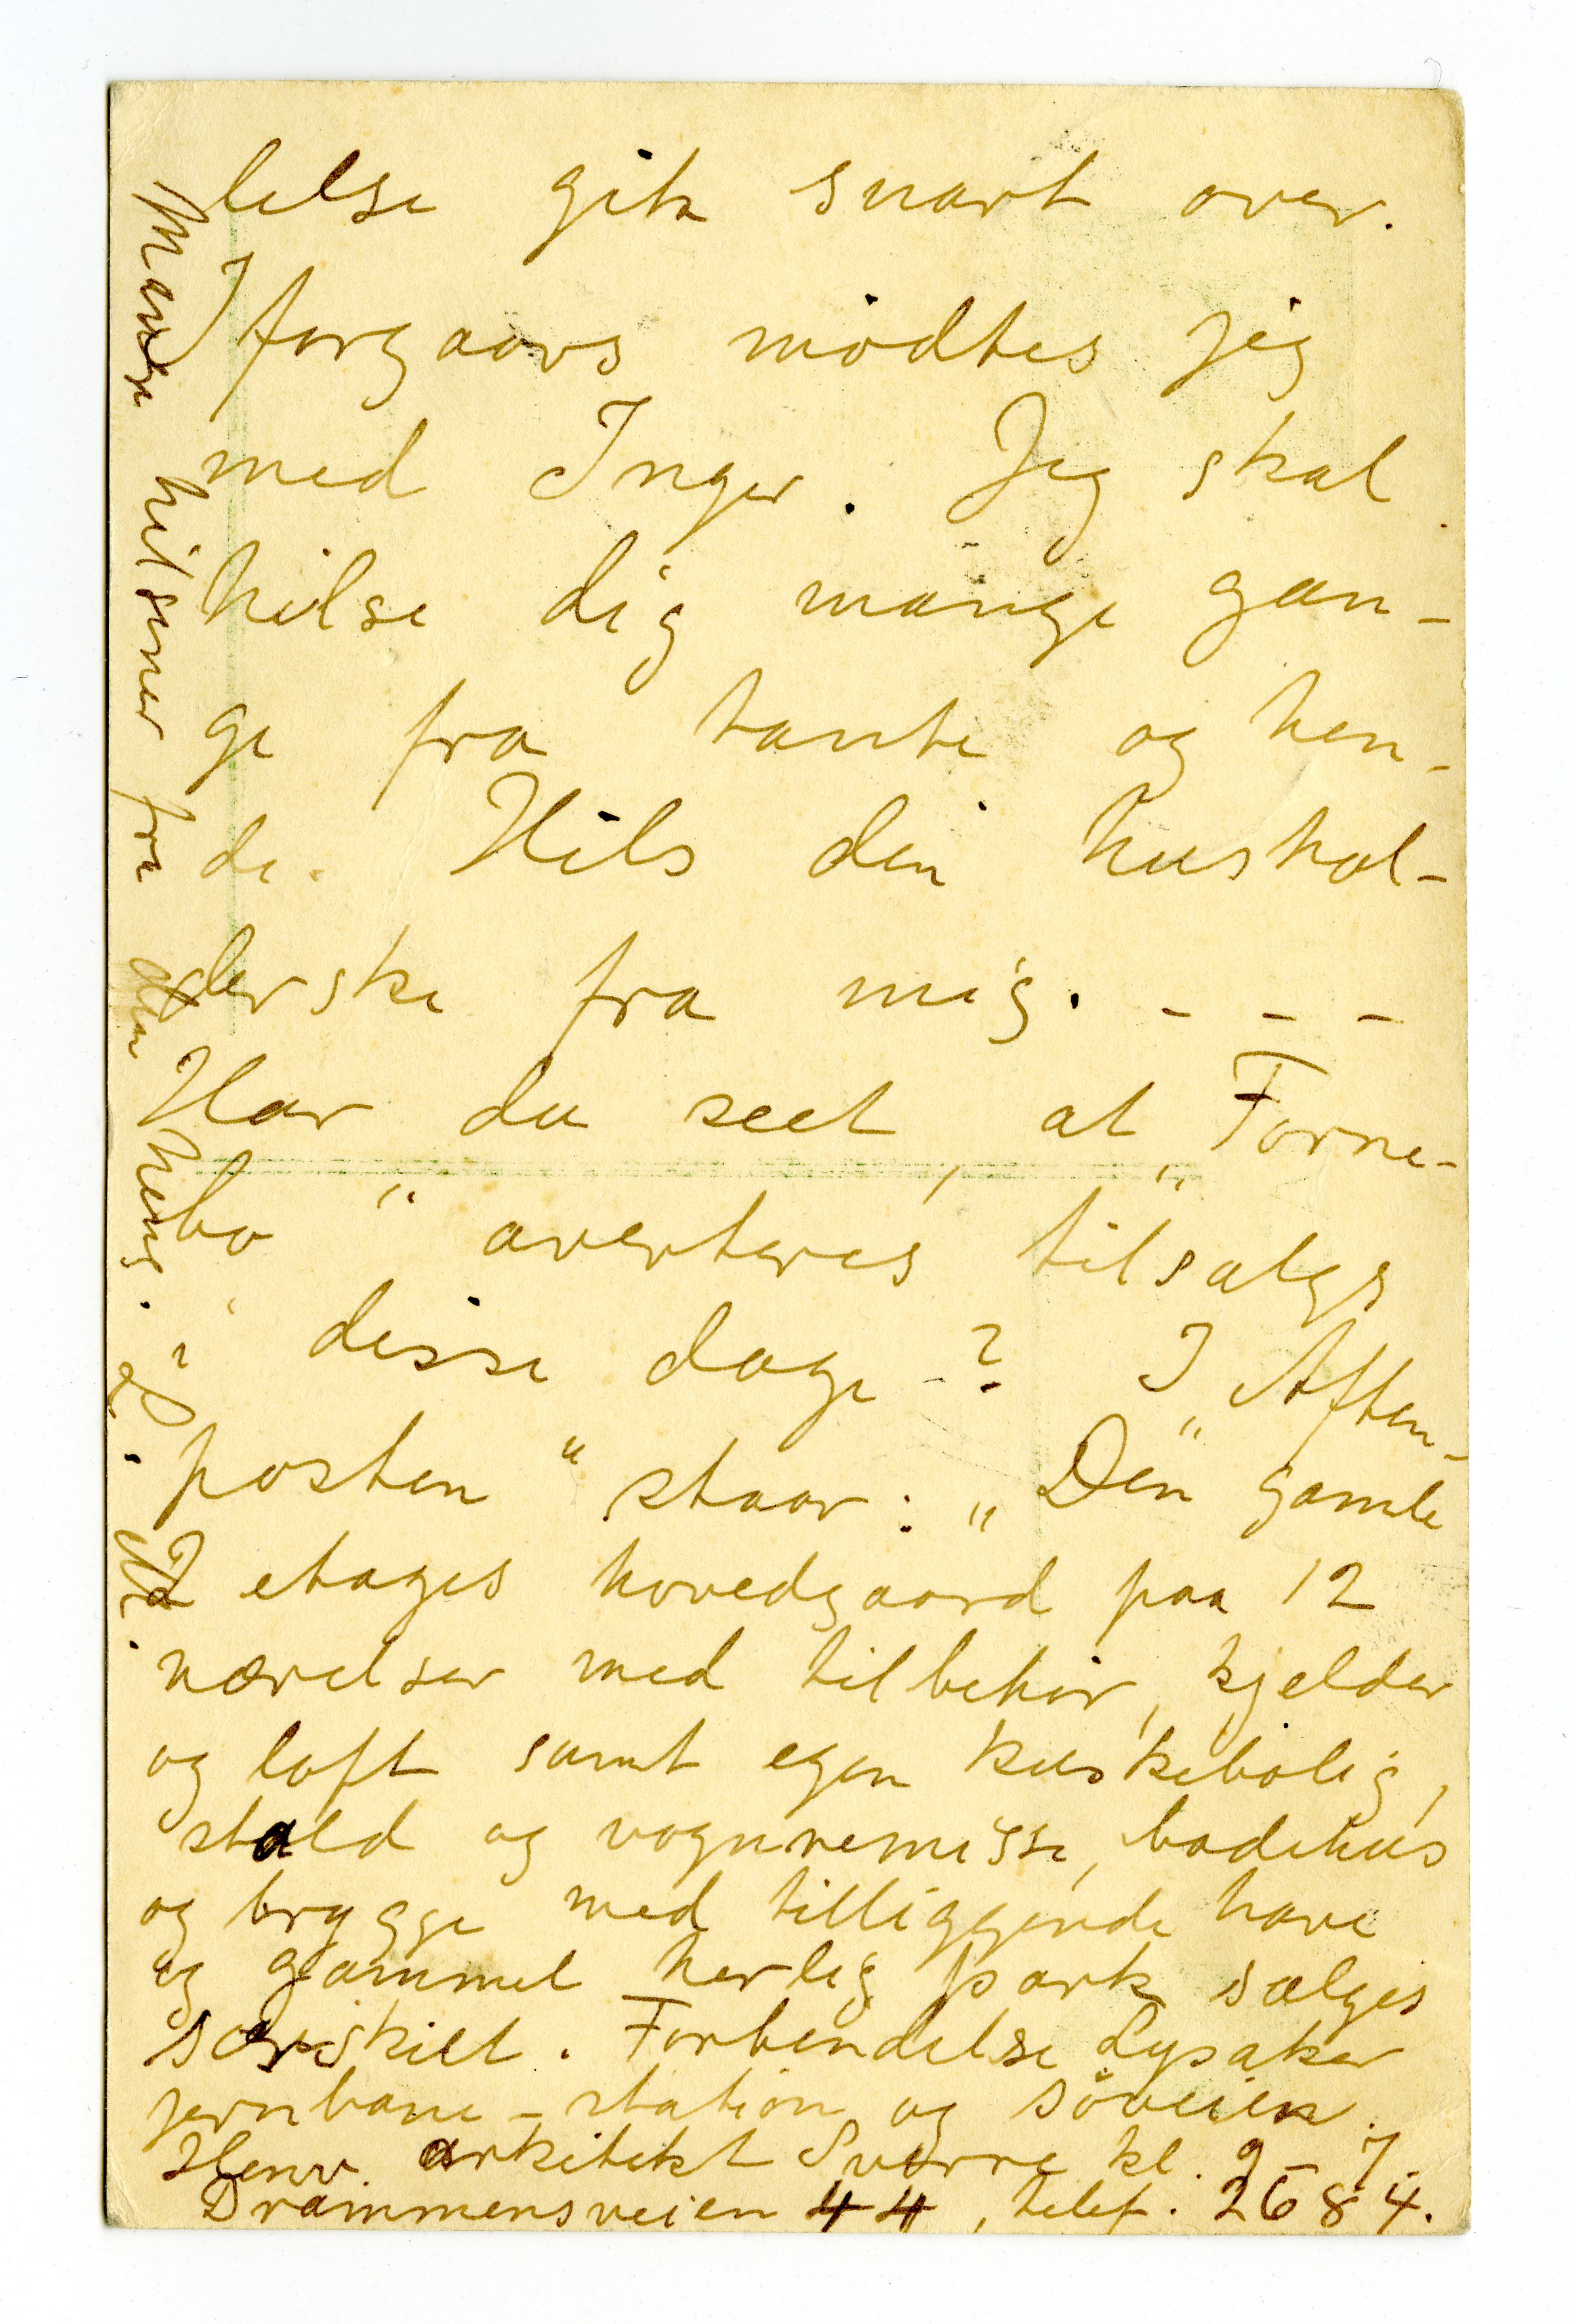 lelse gik snart over.
Iforgaars mødtes jeg
med Inger. Jeg skal
hilse dig mange gan-
ge fra tante og hen-
de. Hils din hushol-
derske fra mig. - - -
Har du seet, at „Forne-
bo" averteres tilsalgs
i disse dage? I „Aften-
posten" staar: „Den gamle
2 etages hovedgaard paa 12
værelser med tilbehør, kjelder
og loft samt egen kuskebolig,
stald og vognremisse, badehus
og brygge med tilliggende have
og gammel herlig park sælges
særskilt. Forbindelse Lysaker
jernbane-station og søveien.
Henv. arkitekt Sverre kl. 9-7.
Drammensveien 44, telef. 2684.
Mange hilsner fra din heng.